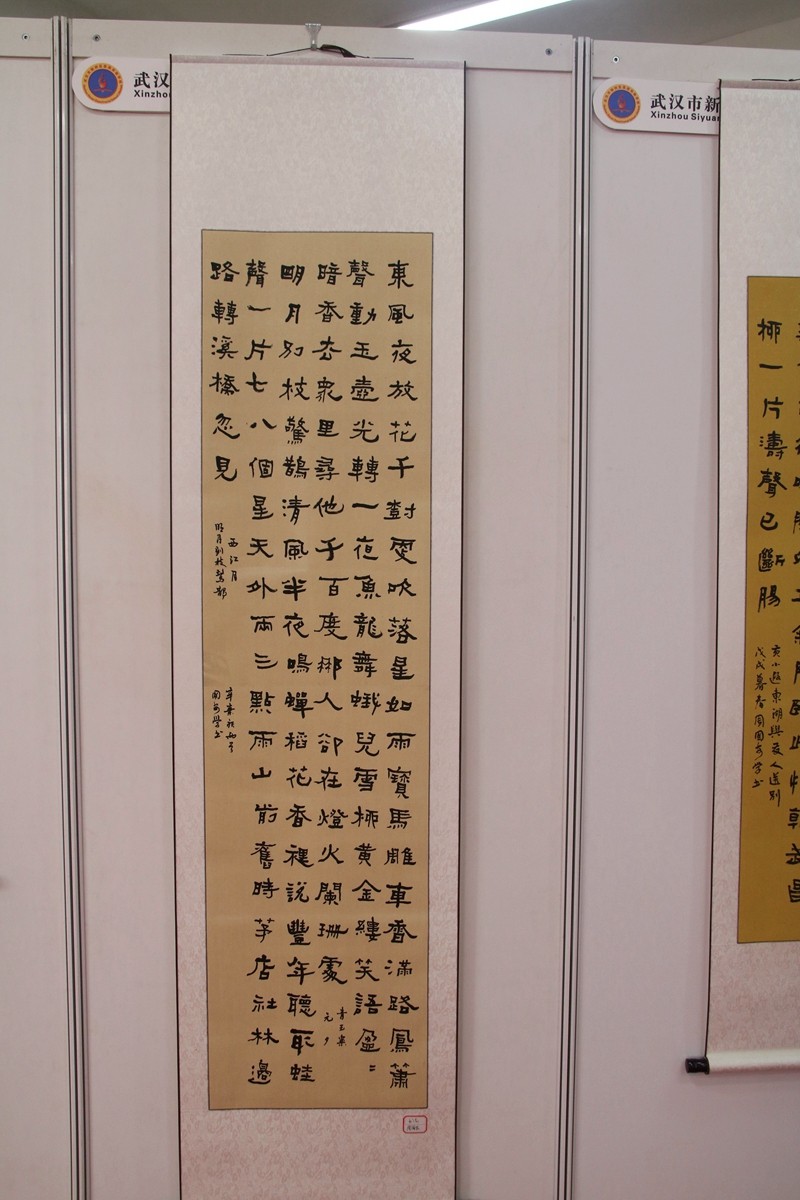 武汉
Xinzhou
武汉市新
Xinzhou Siyuan
東風夜放花千樹更吹落星如雨寶馬雕車香滿路鳳蕭
聲動玉壺光轉一夜魚龍舞蛾兒雪柳黃金縷笑語盈〻
暗香去眾里尋他千百度那人卻在燈火闌珊處
青玉案
元夕
明月別枝驚鵲清風半夜鳴蟬稻花香裡說豐年聽取蛙
聲一片七八個星天外兩三點雨山前舊時茅店社林邊
路轉溪橋忽見
西江月
明月別枝驚鵲
辛棄疾詞兩首
學書
柳一片濤聲已斷腸
東湖與友人道別
戊戌暮春周國安學書